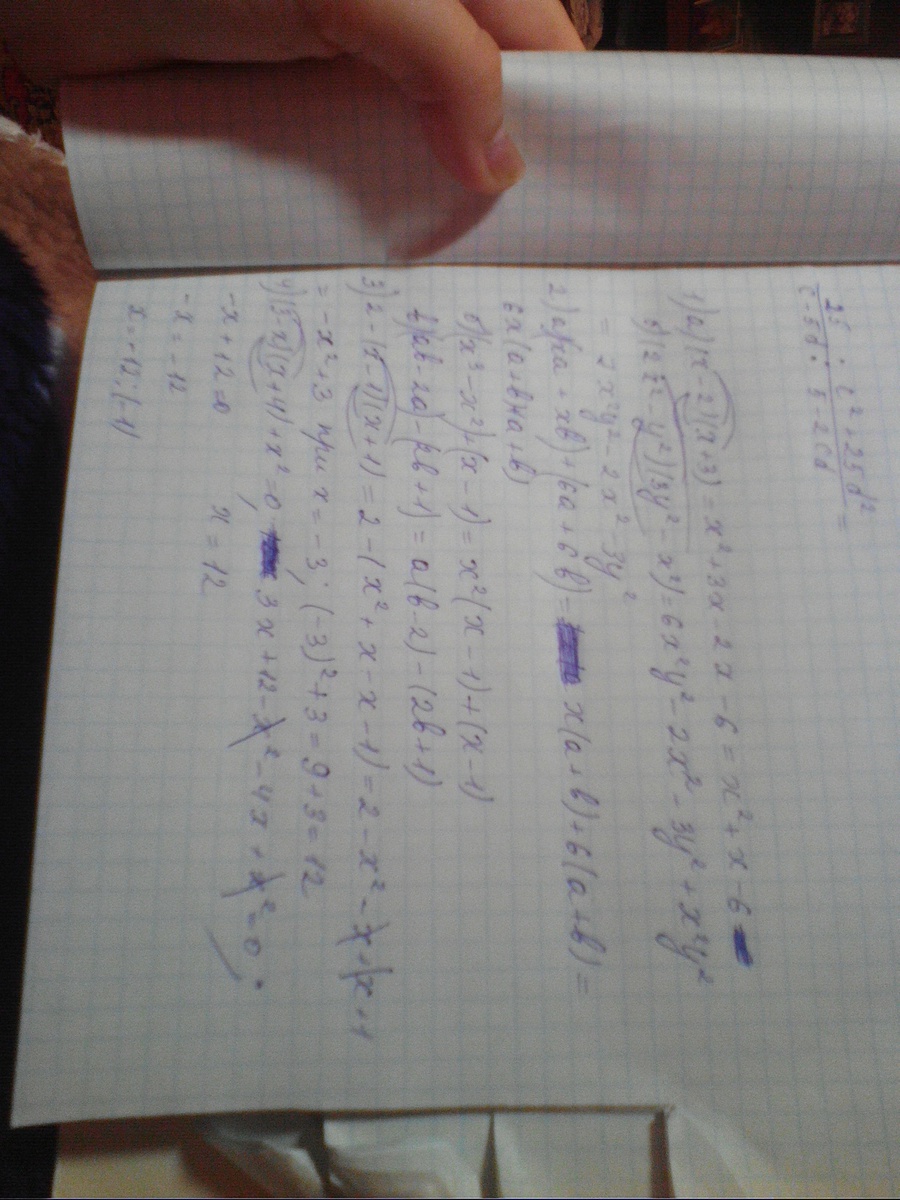 25/(c-5d) : (c²+25d²)/(5-2cd) =
1) а) (x-2)(x+3) = x²+3x-2x-6 = x²+x-6
б) (2x²-y²)(3y²-x²) = 6x²y²-2x²-3y²+x²y²
= 7x²y²-2x²-3y²
2) а) (xa+xb)+(6a+6b) = x(a+b)+6(a+b) =
6x(a+b)(a+b)
б) (x³-x²)+(x-1) = x²(x-1)+(x-1)
в) (ab-2a)-(2b+1) = a(b-2)-(2b+1)
3) 2-(x-1)(x+1) = 2-(x²+x-x-1) = 2-x²-x+x+1
= -x²+3 при x=-3; (-3)²+3=9+3=12
4) (3-x)(x+4)+x²=0; 3x+12-x²-4x+x²=0
-x+12=0 x=12
-x=-12
x=-12:(-1)